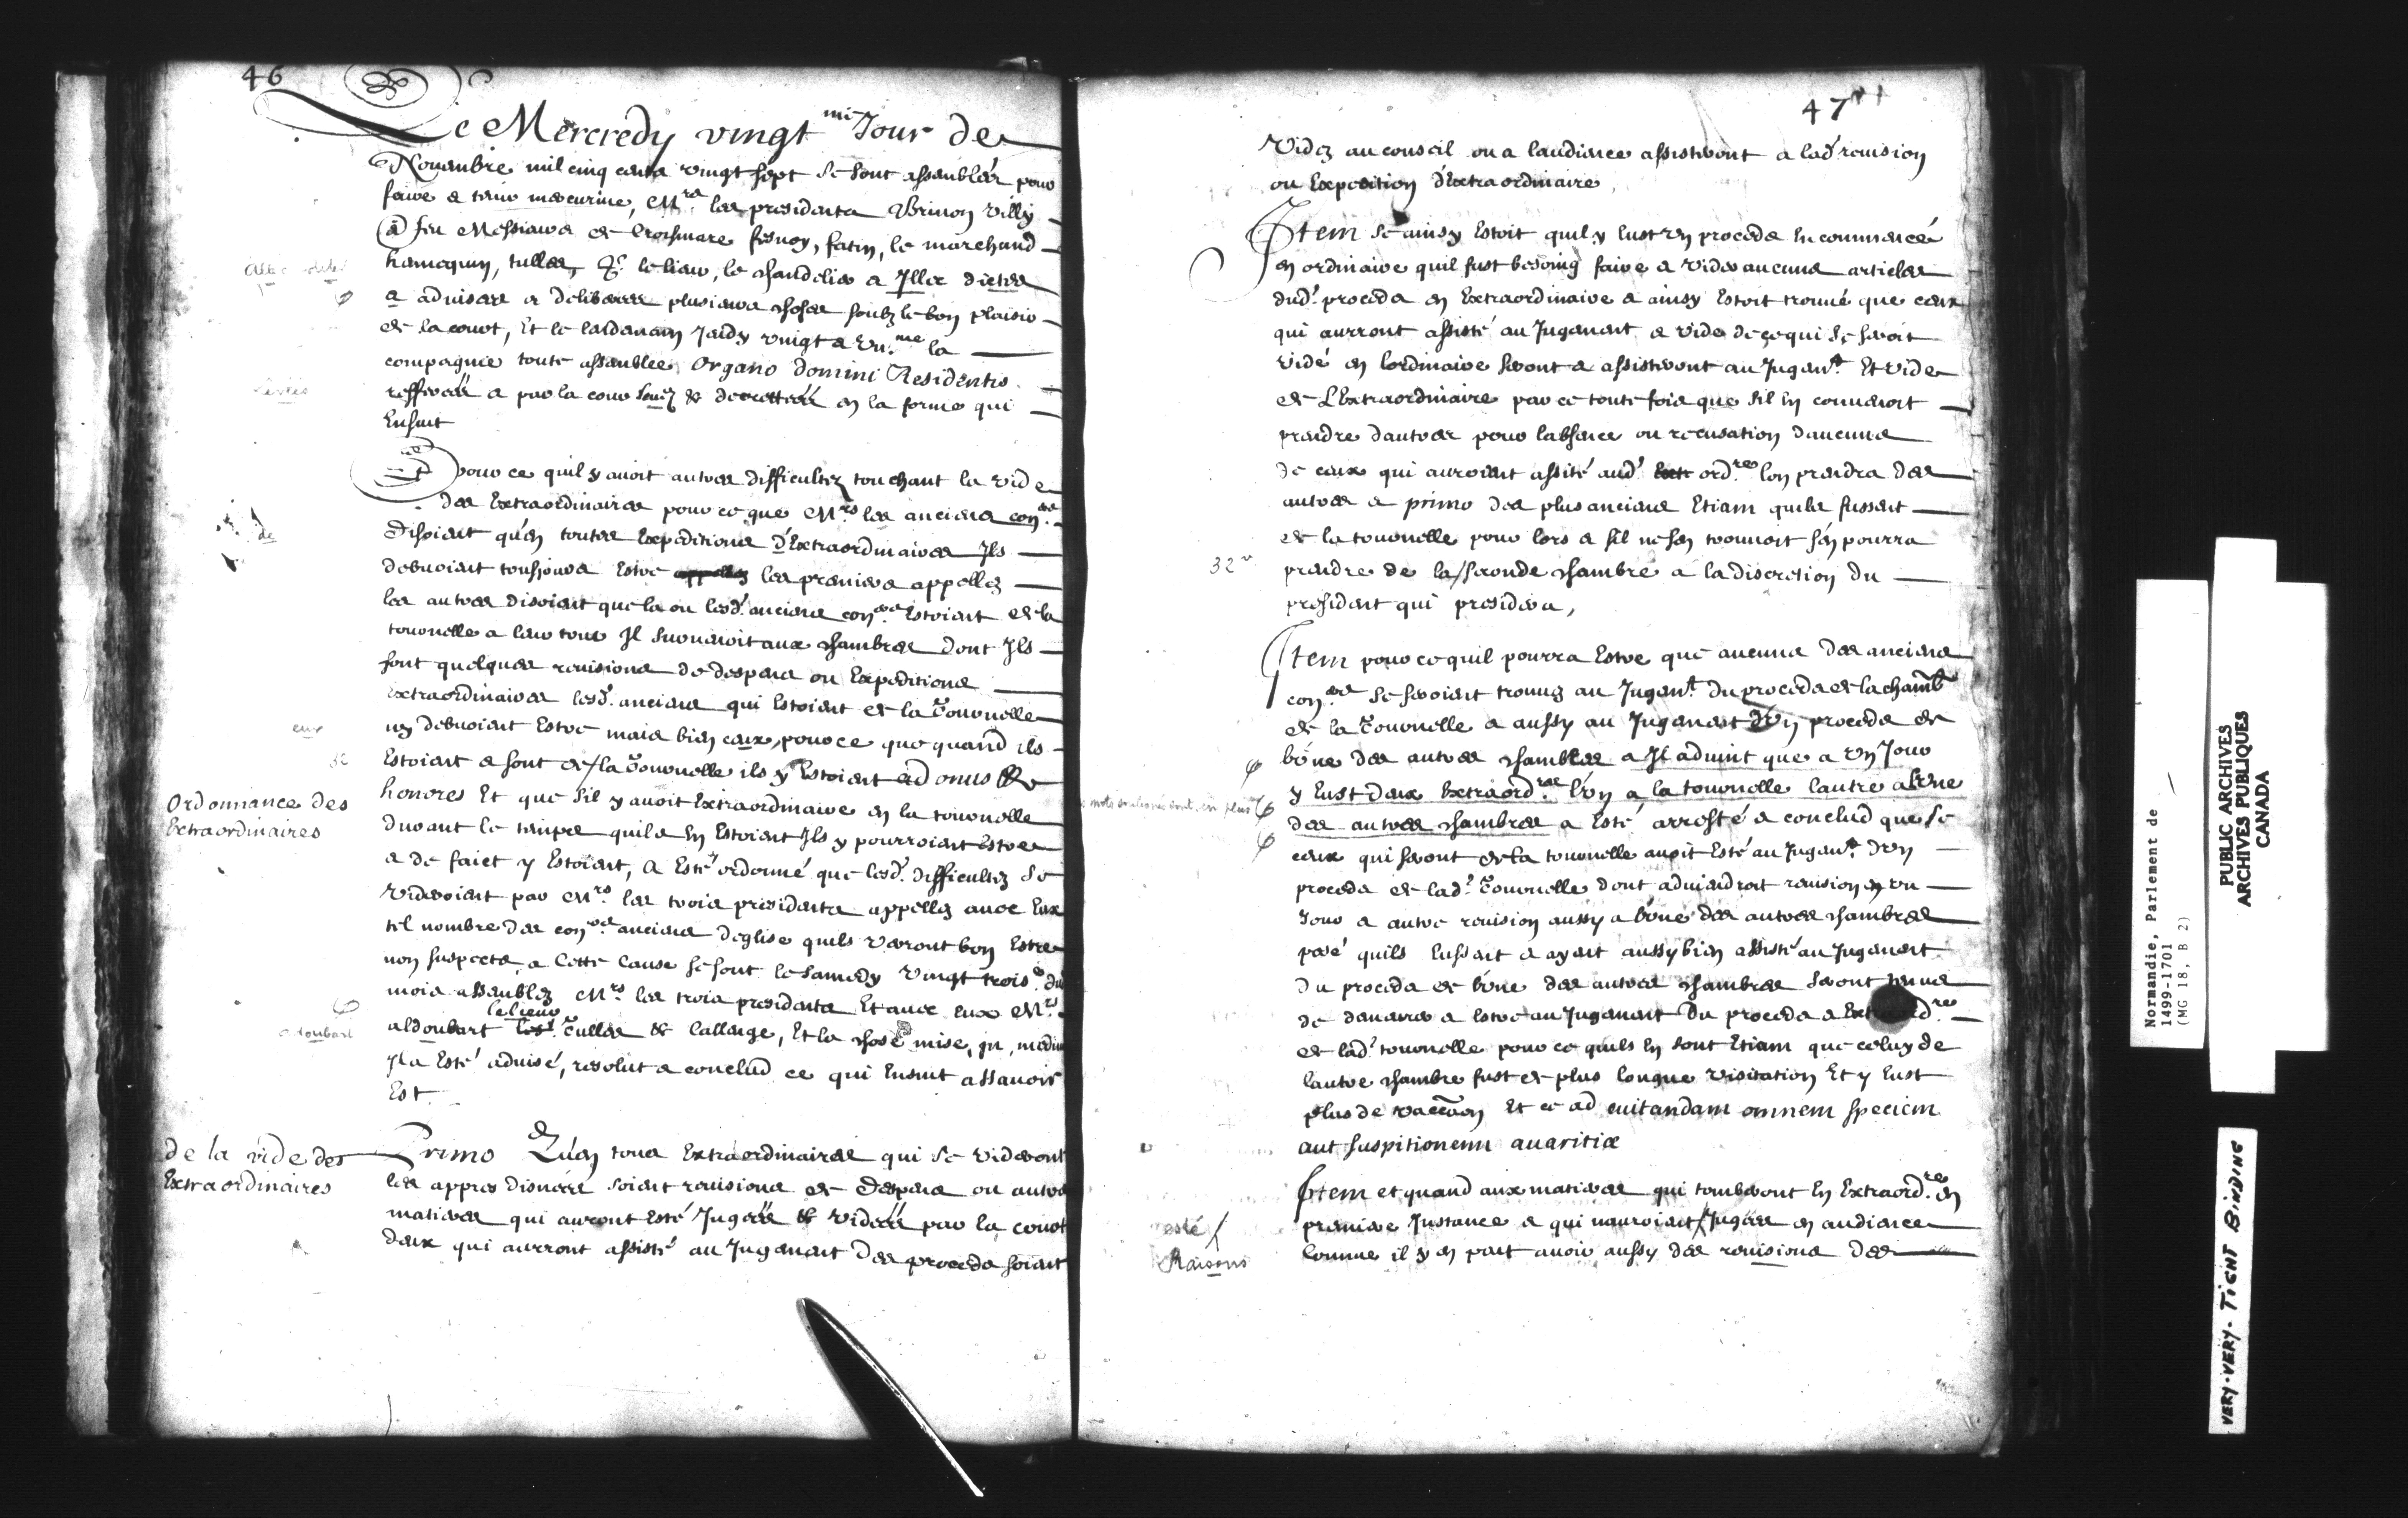 46
Le Mercredy vingt me Jour de
Nouembre mil cinq cents vingt sept se sont assemblés pour
faire et tenir mercuriale, Mrs les presidents Brinon Villy
feu Messieurs de Croismare, le marchand
hamequin, tulles, le lieur, le chandelier a Iller dictes
a aduiser et deliberer plusieurs choses soubz le bon plaisir
de la court, Et le lendemain Jeudy vingt et Vn.me la
compagnie toute assemblee, Organo domini Residentis
refferéés et par la cour et decrettéés en la forme qui
Ensuit
Et pour ce quil y auoit autres difficultez touchant la vide
des Extraordinaires pour ce que Mrs les anciens conrs
disoient quen toutes Expeditions d'Extraordinaires Ils
debuoient tousjours Estre appellez les premiers appellez
les autres disoient que la ou lesd. anciens conrs Estoient de la
tournelle a leur tour Il suruenoit aux chambres dont Ils
sont quelques reuisions de despens ou Expeditions
extraordinaires lesd. anciens qui Estoient de la Tournelle
ny debuoient Estre mais bien ceux, pour ce que quand ils
Estoient et sont de/la Tournelle ils y Estoient ad onus
honores Et que sil y auoit Extraordinaire en la tournelle
durant le temps quils en Estoient Ils y pourroient Estre
et de faict y Estoient, a Esté ordonné que lesd. difficultez se
videroient par Mrs les trois presidents appellez auec Eux
tel nombre des conrs anciens deglise quils verront bon Estre
non suspects, a Cette Cause se sont le Samedy Vingt trois.e du
mois assemblez Mrs les trois presidents Et auec Eux Mrs
le lieur
aldoubart tulles et lallange, Et la chose mise, in, medium
Il a Esté aduisé, resolut et conclud ce qui Ensuit assauoir
Est
eux
Ordonnance des
Extraordinaires
adoubart
de la vide des
Extraordinaires
Primo Qu'en tous Extraordinaires qui se videront
les appres disnéés soient reuisions de despens ou autres
matieres qui auront Esté Jugéés et vidéés par la court
deux qui aurront assisté au Jugement des proceds soient
47
Videz au conseil ou a laudience assisteront a lad reuision
ou Exposition d'Extraordinaire
Item se ainsy Estoit quil y Eust vn proceds Encommencé
en ordinaire quil fust besoing faire et vider aucuns articles
dud. proceds en Extraordinaire et ainsy Estoit trouué que ceux
qui aurront assisté au Jugement et vide de ce qui se seroit
vidé en lordinaire seront et assisteront au Jugemt Et vide
de L'Extraordinaire par ce toutefois que sil en conuenoit
prendre dautres pour labsence ou recusation daucuns
de ceux qui auroient assité aud. ordre lon prendra des
autres et primo des plus anciens Etiam quils fussent
de la tournelle pour lors et sil ne sen trouuoit sen pourra
32 v
prendre de la/seconde chambre a la discretion du
president qui presidera,
Item pour ce quil pourra Estre que aucuns des anciens
conrs se seroient trouuez au Jugemt du proceds de la chamb
de la Tournelle et aussy au Jugement dvn proceds de
lvne des autres chambres et Il aduint que a vn Jour
y Eust deux Extraordres lvn a la tournelle lautre a lvne
mots soulignés sont en plus
des autres chambres a Esté arresté et conclud que se
ceux qui seront de la tournelle auoit Esté au Jugemt dvn
proceds de lad. Tournelle dont aduiendroit reuision en vn
Jour et autre reuision aussy a lvne des autres chambres
posé quils Eussent et ayent aussy bien assisté au Jugement
du proceds de lvne des autres chambres seront tenus
de demeurer et Estre au Jugement du proceds
de lad. tournelle pour ce quils en sont Etiam que celuy de
lautre chambre fust de plus longue visitation Et y Eust
plus de vaccaon Et ce ad euitandam omnem speciem
aut suspitionem auaritiæ
Item et quand aux matieres qui tomberont en Extraord.res en
esté/
premiere Instance et qui nauroient/Jugées en audiance
Raisons
Comme il y en peut auoir aussy des reuisions des
Normandie, Parlement de
1499-1701
(MG 18, B 2)
PUBLIC ARCHIVES
ARCHIVES PUBLIQUES
CANADA
VERY-VERY-TIGHT BINDING